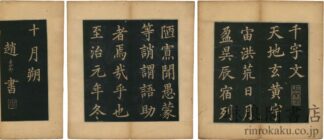 千字文
天地玄黃宇
宙洪荒日月
盈昃辰宿列
陋寡聞愚蒙
等誚謂語助
者焉哉乎也
至治元年冬
十月朔
趙 書
書店
rinrokaku.co.jp